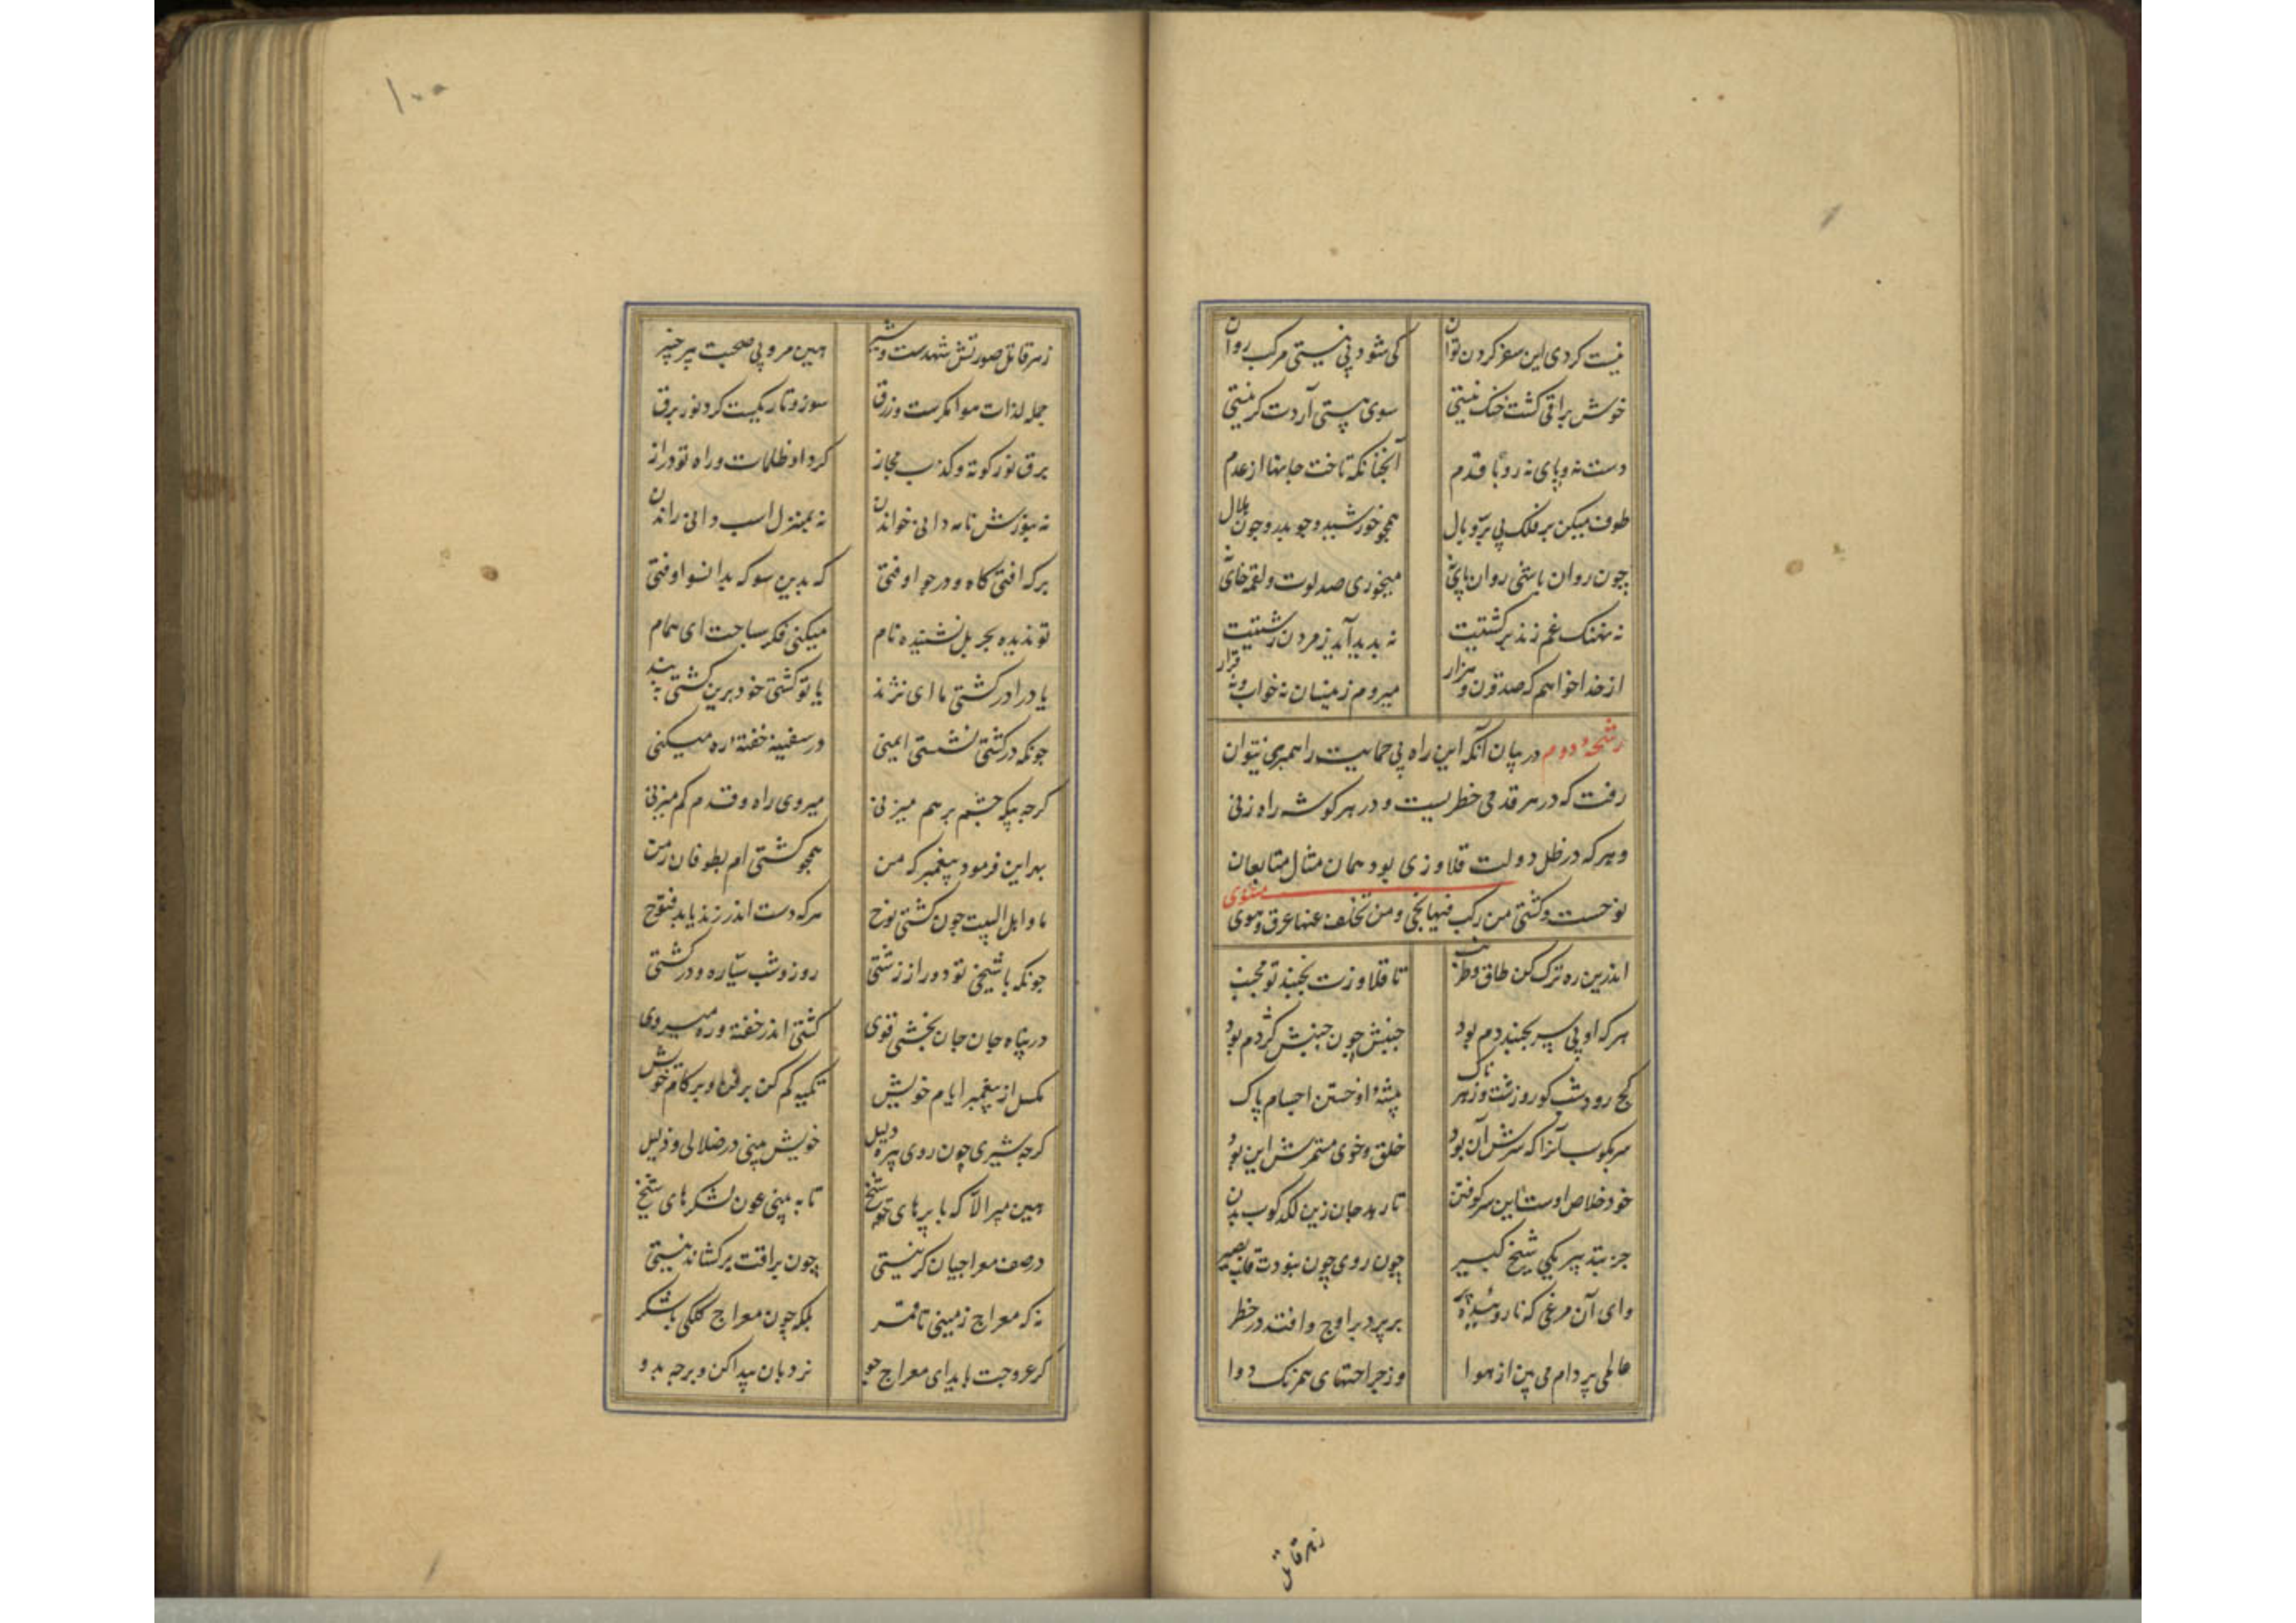 نیست کردی این سفر کردن توان کی شود بی نیستی مرکب روان
خوش براقی کشت خنک نیستی سوی هستی آردت کر نیستی
دست نه و پای نه رو تا قدم آنچنانکه تاخت جانها از عدم
طوف میکن بر فلک بی پر و بال همچو خورشید و چو بدر و چون هلال
چون روان باشی روان و پای نه میخوری صد لوت و لقمه خای نه
نه نهنک غم زند بر کشتیت نه پدید آید ز مردن زشتیت
از خدا خواهم که صد قرن و هزار میروم زینسان نه خواب و نه قرار
رشحهٔ دوم در بیان آنکه این راه بی حمایت راهبری نتوان
رفت که در هر قدمی خطریست و در هر کوشه راه زنی
و هر که در ظل دولت قلاوزی بود همان مثال متابعان
نوحست و کشتی من رکب فیها نجی و من تخلف عنها غرق و هوی مثنوی
اندرین ره ترک کن طاق و طرنب تا قلاوزت نجنبد تو مجنب
هر که او بی سر بجنبد دم بود جنبش چون جنبش کژدم بود
کج رو و شب کور و زشت و زهرناک پیشهٔ او خستن اجسام پاک
سر بکوب آنرا که سرش آن بود خلق و خوی مستمرش این بود
خود خلاص اوست این سر کوفتن تا رهد جان زین لکد کوب بدن
جز بتدبیر یکی شیخ کبیر چون روی چون نبودت قلب بصیر
وای آن مرغی که نا روئیده پر بر پرد بر اوج و افتد در خطر
عالمی پر دام می بین از هوا وز جراحتهای همرنک دوا
زهر قاتل
۱۰۰
زهر قاتل صورتش شهدست و شیر هین مرو بی صحبت پیر خبیر
جمله لذات هوا مکرست و زرق سوز و تاریکیست کرد نور برق
برق نور کوته و کذب مجاز کرد او ظلمات و راه تو دراز
نه بنورش نامه دانی خواندن نه بمنزل اسب دانی راندن
بر که افتی کاه و در جو اوفتی که بدین سو که بدانسو اوفتی
تو ندیده بحر بل نشنیده نام میکنی فکر سباحت ای همام
یا درا در کشتی ما ای نژند یا تو کشتی خود برین کشتی ببند
چونکه در کشتی نشستی ایمنی در سفینه خفتهٔ ره میکنی
کرچه یکه چشم بر هم میزنی میروی راه و قدم کم میزنی
بهر این فرمود پیغمبر که من همچو کشتی ام بطوفان زمن
ما و اهل البیت چون کشتی نوح هر که دست اندر زند یابد فتوح
چونکه با شیخی تو دور از زشتی روز و شب سیاره و در کشتی
در پناه جان جان بخشی توی کشتی اندر خفتهٔ ره میروی
مکسل از پیغمبر ایام خویش تکیه کم کن بر فن و بر کام خویش
کرچه شیری چون روی ره بی دلیل خویش بینی در ضلالی و ذلیل
هین مپر الا که با پرهای شیخ تا به بینی عون لشکرهای شیخ
در صف معراجیان کر نیستی چون براقت بر کشاند نیستی
نه که معراج زمینی تا قمر بلکه چون معراج کلکی با شکر
کر عروجت باید ای معراج جو نردبان پیدا کن و بر جه بدو